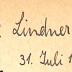 Lindner
31. Juli 1